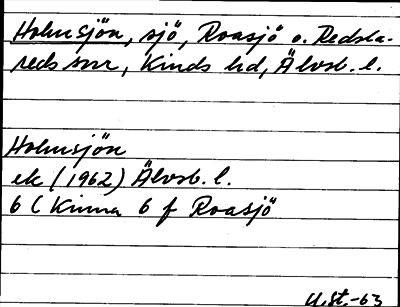 Holmsjön, sjö, Roasjö o. Redsla-
reds snr, Kinds hd, Älvsb. l.
Holmsjön
ek (1962) Älvsb. l.
6 C Kinna 6 f Roasjö
U.St.-63